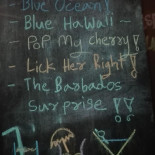 - Blue Ocean!
- Blue Hawaii -
PoP My Cherry!
- Lick Her Right!
- The Barbados
Surprise!!